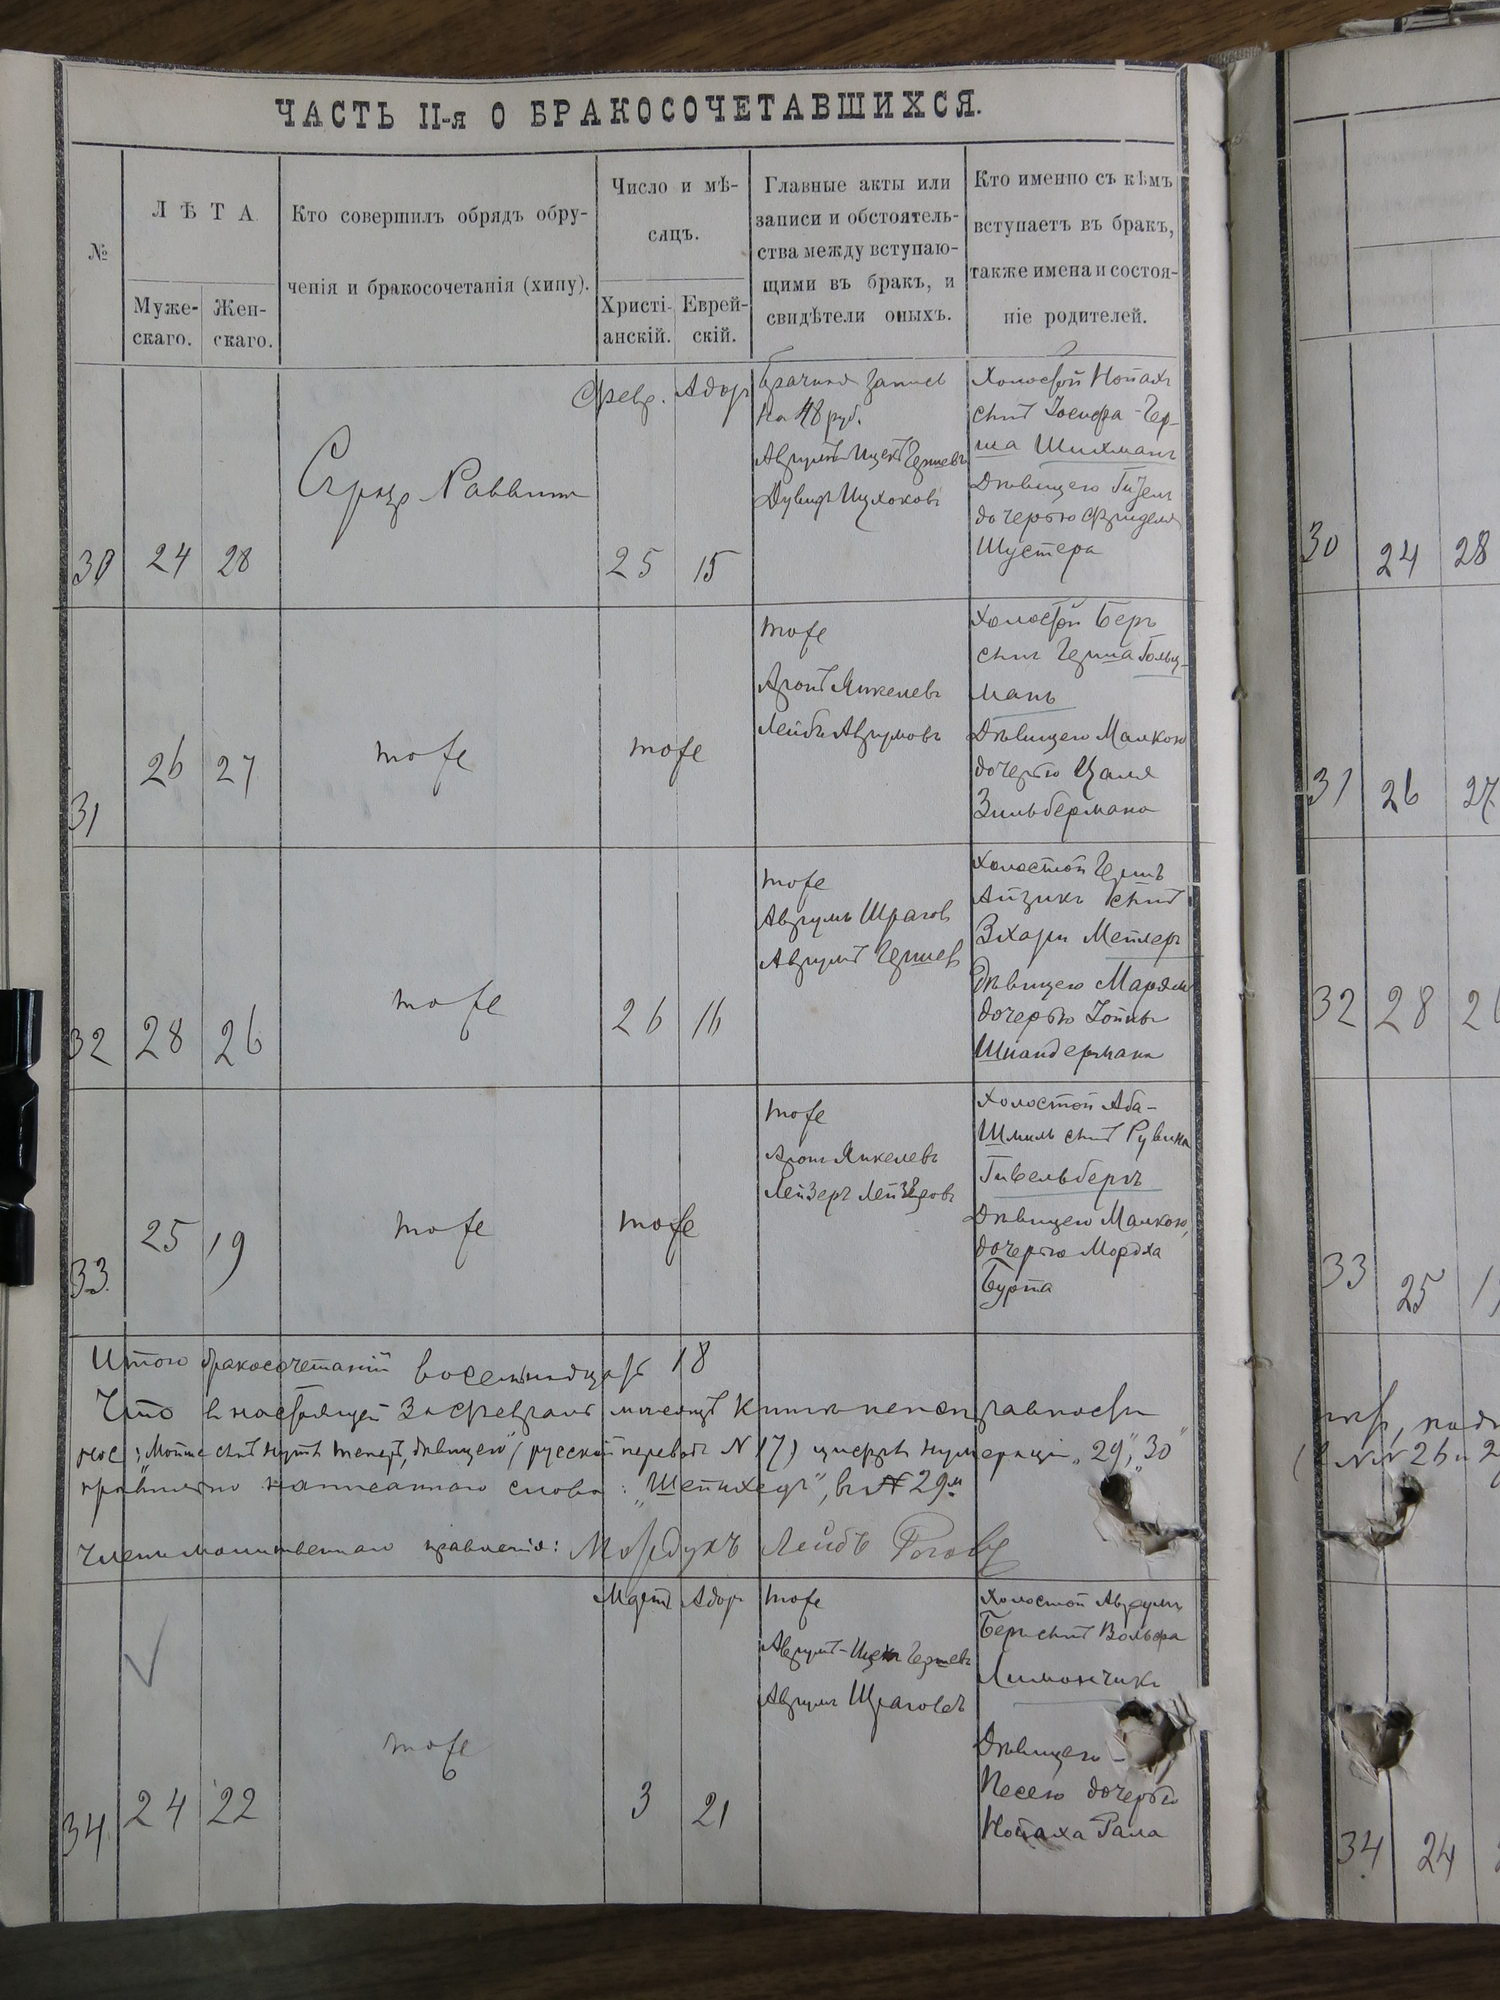 ЧАСТЬ II-я О БРАКОСОЧЕТАВШИХСЯ.
№
ЛѢТА
Муже-
скаго.
Жен-
скаго.
Кто совершилъ обрядъ обру-
ченія и бракосочетанія (хипу).
Число и мѣ-
сяцъ.
Христі-
анскій.
Еврей-
скій.
Главные акты или
записи и обстоятель-
ства между вступаю-
щими въ бракъ, и
свидѣтели оныхъ.
Кто именно съ кѣмъ
вступаетъ въ бракъ,
также имена и состоя-
ніе родителей.
30
24
28
Раввинъ
Февр.
25
Адоръ
15
Брачная запись
на 48 руб.
Аврумъ Ицекъ Гершевъ
Дувидъ Ицхоковъ
Холостой Нойахъ
сынъ Іосифа-Гер-
ша Шихманъ
Дѣвицею Гизелъ
дочерью Фриделя
Шустера
31
26
27
тоже
тоже
тоже
Аронъ Янкелевъ
Лейбъ Аврумовъ
Холостой Беръ
сынъ Герша Гольц-
манъ
Дѣвицею Малкою
дочерью Цаля
Зильбермана
32
28
26
тоже
26
16
тоже
Аврумъ Шраговъ
Аврумъ Гершевъ
Холостой Гершъ
Айзикъ сынъ
Зхари Мейлеръ
Дѣвицею Марьям
дочерью Іойны
Шнайдермана
33
25
19
тоже
тоже
тоже
Аронъ Янкелевъ
Лейзеръ Лейзеровъ
Холостой Аба-
Шмиль сынъ Рувина
Гивельбергъ
Дѣвицею Малкою,
дочерью Мордха
Бурта
Итого бракосочетаній восемнадцать 18
Что въ настоящей за Февраль мѣсяцъ книгѣ неисправности
сынъ дѣвицею" (русскій переводъ N 17) цифры нумерації „29", „30"
написаннаго слова: „Шейнхедъ", въ № 29м
Члены молитвеннаго правленія: Мордухъ Лейбъ
34
24
22
тоже
Мартъ
3
Адоръ
21
тоже
Аврумъ-Ицекъ Гершевъ
Аврумъ Шраговъ
Холостой Аврумъ
Беръ сынъ Вольфа
Лимончикъ
Дѣвицею
Песею дочерью
Нойаха Рала
30
24
28
31
26
27
32
28
33
25
34
24